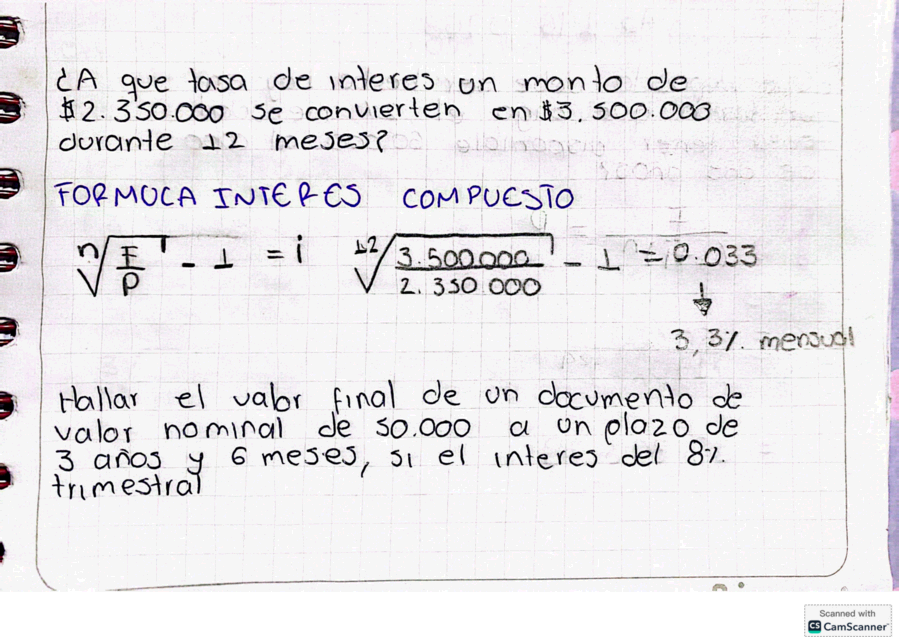 ¿A que tasa de interes un monto de
$2.350.000 se convierten en $3.500.000
durante 12 meses?
FORMUCA INTERES COMPUESTO
n√F/P - 1 = i 12√3.500.000/2.350.000 - 1 = 0.033
↓
3,3% mensual
Hallar el valor final de un documento de
valor nominal de 50.000 a un plazo de
3 años y 6 meses, si el interes del 8%
trimestral
Scanned with
CS CamScanner